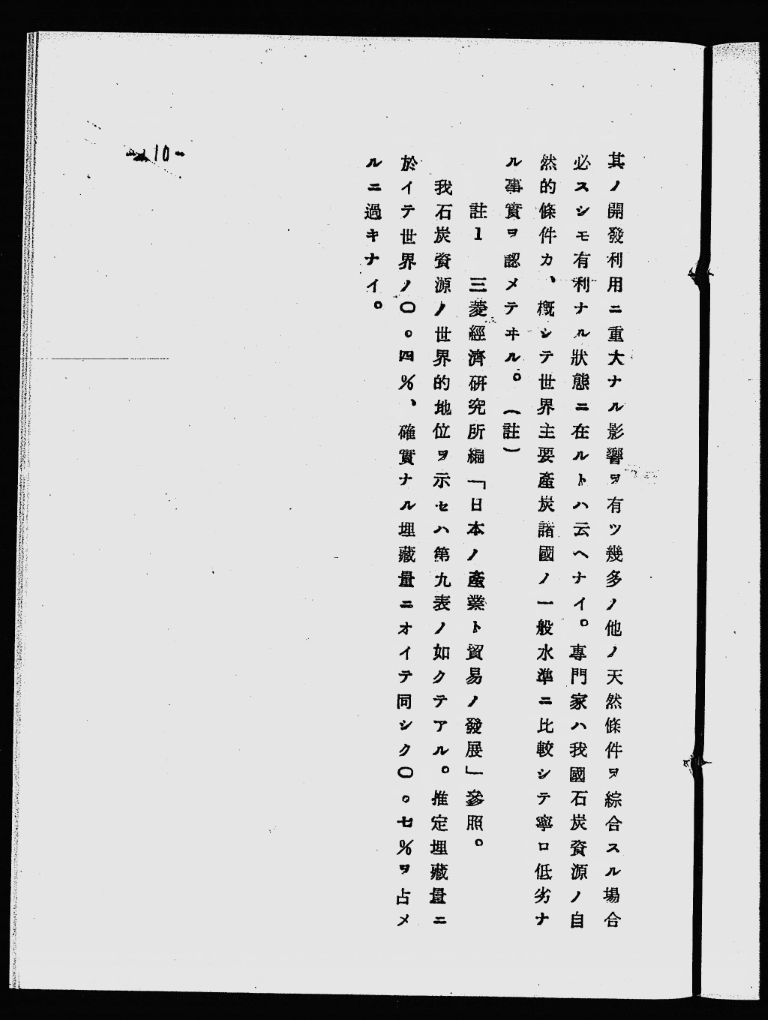 其ノ開發利用ニ重大ナル影響ヲ有ツ幾多ノ他ノ天然條件ヲ綜合スル場合
必スシモ有利ナル狀態ニ在ルトハ云ヘナイ。專門家ハ我國石炭資源ノ自
然的條件カ、槪シテ世界主要產炭諸國ノ一般水準ニ比較シテ寧ロ低劣ナ
ル事實ヲ認メテヰル。(註)
註1 三菱經濟研究所編「日本ノ產業ト貿易ノ發展」參照。
我石炭資源ノ世界的地位ヲ示セハ第九表ノ如クテアル。推定埋藏量ニ
於イテ世界ノ〇。四%、確實ナル埋藏量ニオイテ同シク〇。七%ヲ占メ
ルニ過キナイ。
-10-